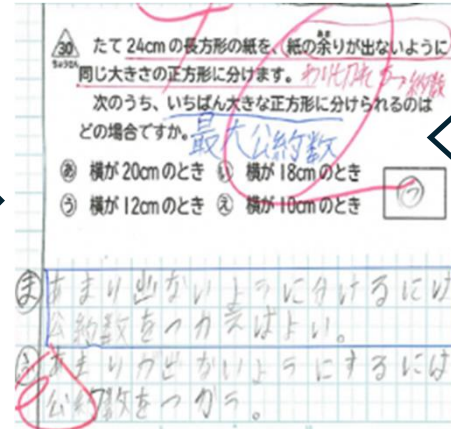 30 たて24cmの長方形の紙を、紙の余りが出ないように
ちょうせん
同じ大きさの正方形に分けます。わり切れる 約数
次のうち、いちばん大きな正方形に分けられるのは
どの場合ですか。最大公約数
あ 横が20cmのとき い 横が18cmのとき
う 横が12cmのとき え 横が10cmのとき
う
ま あまり出ないように分けるには
公約数をつかえばよい。
あまりが出ないようにするには
公約数をつかう。